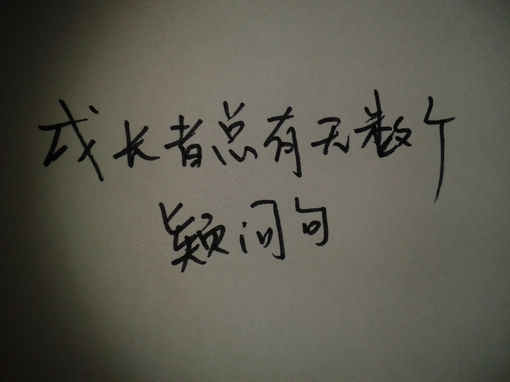 成长者总有无数个
疑问句